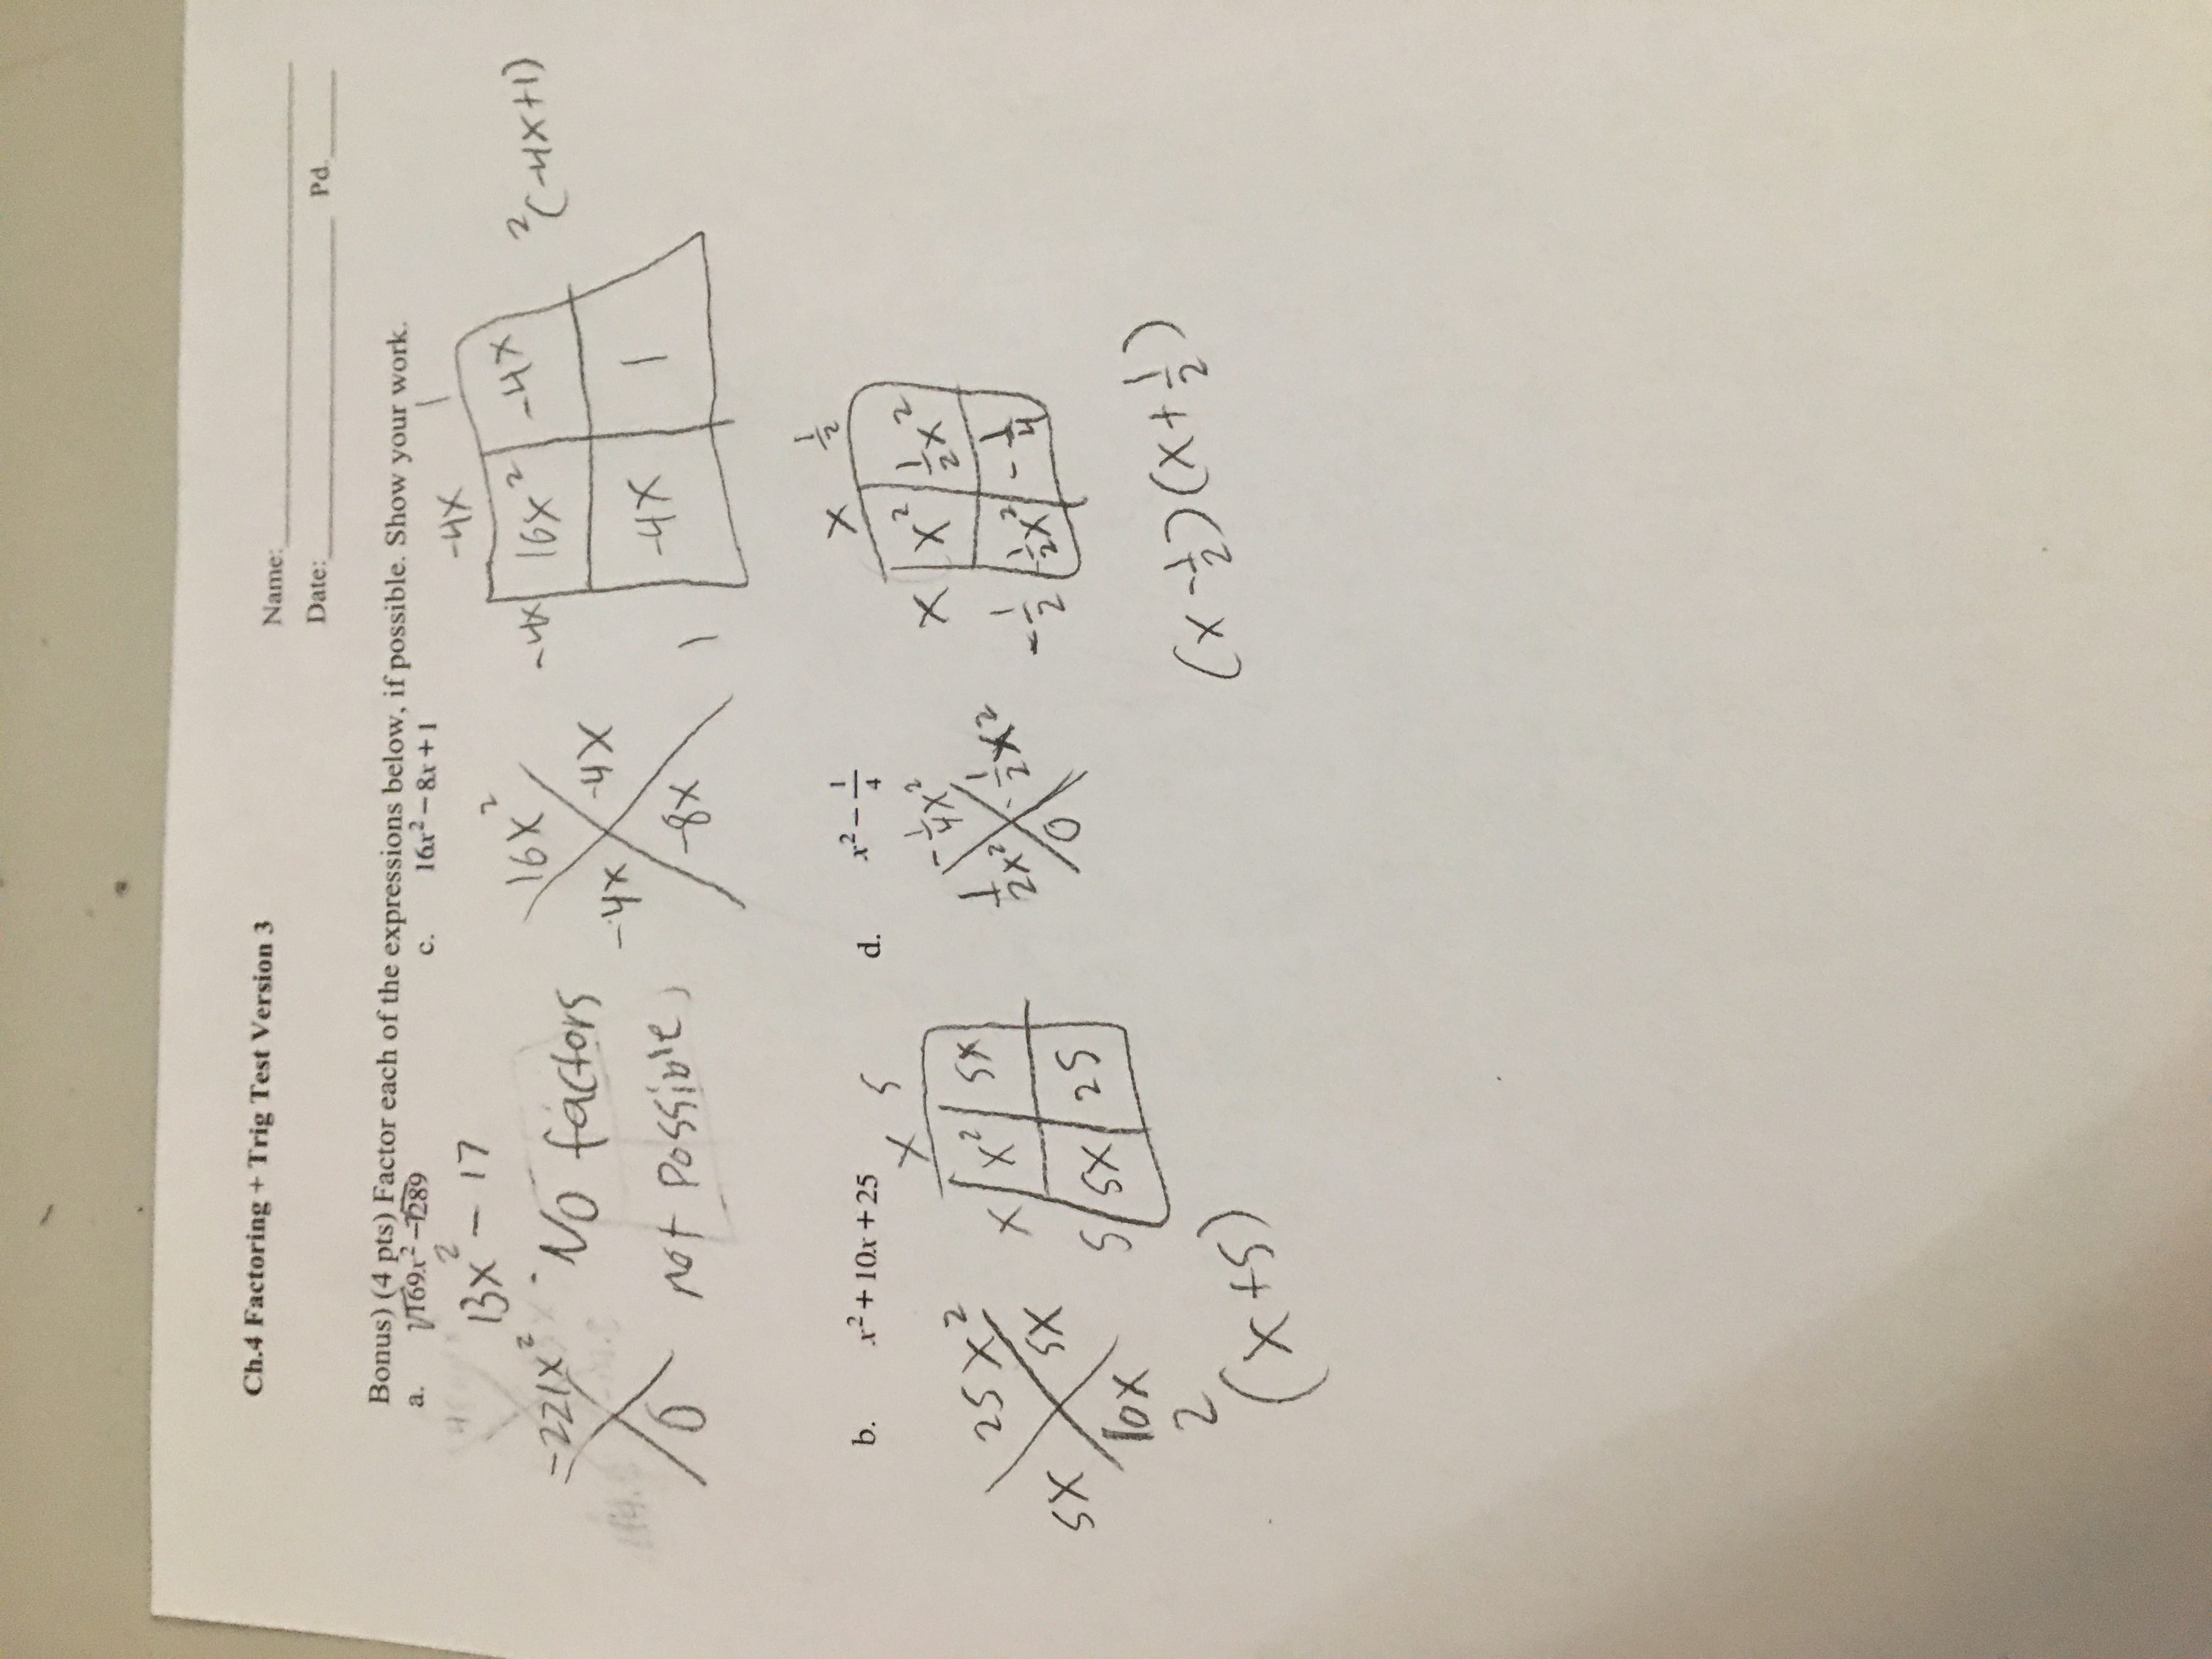 Ch.4 Factoring + Trig Test Version 3
Name:
Date: Pd.
Bonus) (4 pts) Factor each of the expressions below, if possible. Show your work.
a. √169x² - √289
13x² - 17
-221x²
0
No factors
not possible,
c. 16x² - 8x + 1
16x²
-4x -4x
-8x
-4x 1
-4x 16x² -4x
1 -4x 1
²(-4x+1)
b. x² + 10x + 25
25x²
5x 5x
10x
x 5
x x² 5x
5 5x 25
²(x+5)
d. x² - 1/4
-1/4x²
1/2x² -1/2x²
0
x 1/2
x x² 1/2x²
-1/2 -1/2x² -1/4
(x-1/2)(x+1/2)